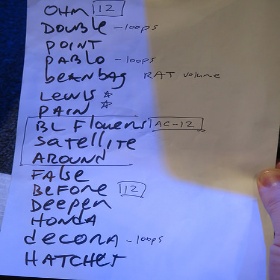 OHM 12
DOUBLE - loops
POINT
PABLO - loops
beanbag RAT volume
LEWIS ☆
PAIN ☆
BL Flowers AC-12
Satellite
AROUND
FALSE
BEFORE 12
DEEPER
HONDA
decora - loops
HATCHET